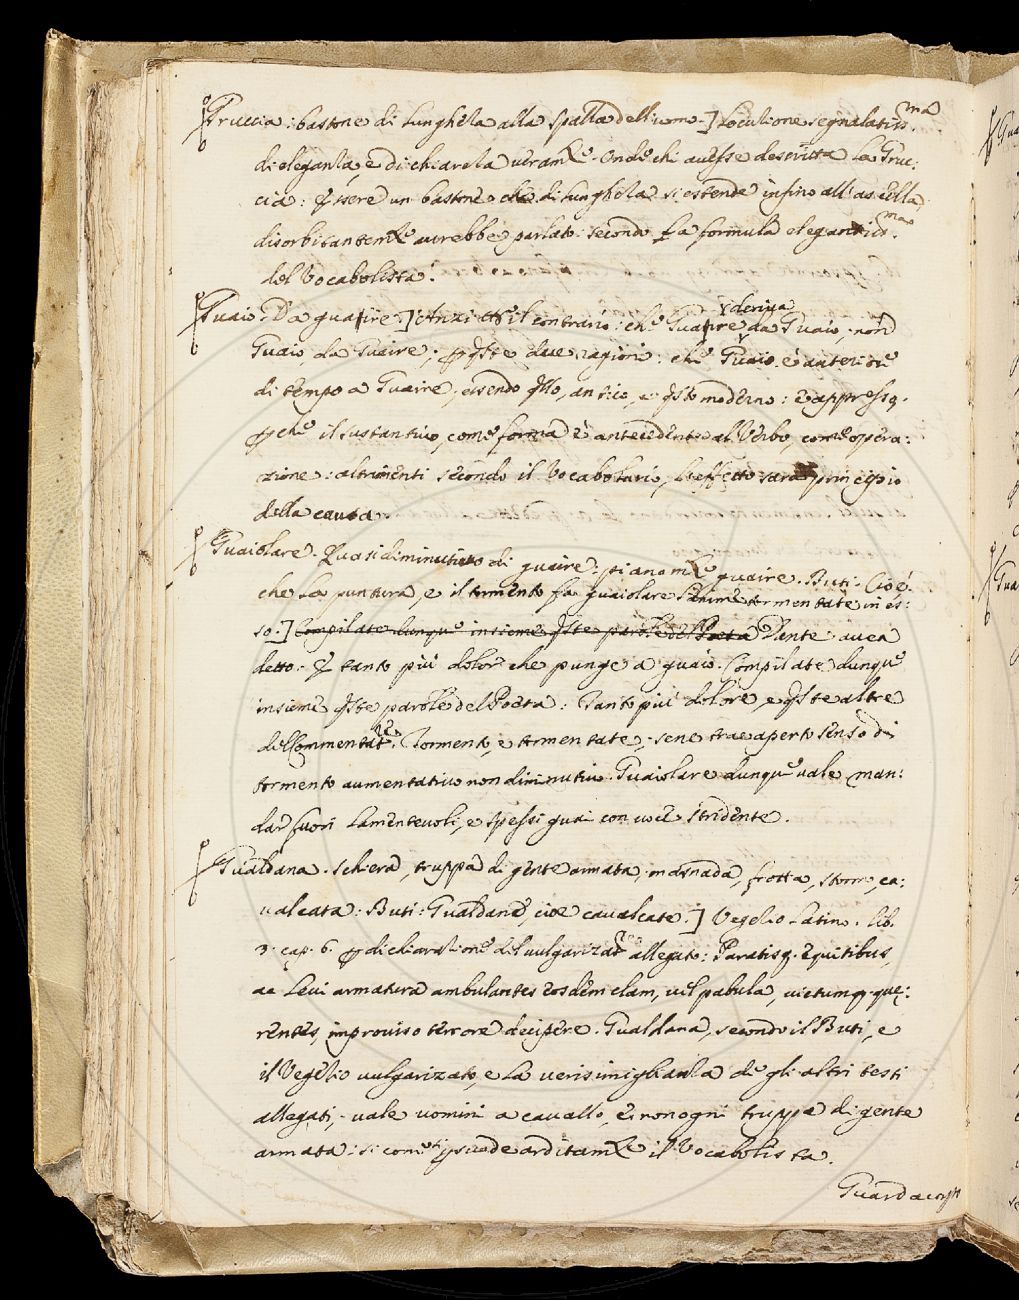 Gruccia: bastone di lunghezza alla spalla dell'uomo.] Locutione segnalatiss.ma
di eleganza, e di chiarezza utram.te. Onde chi avesse descritta la Gruc:
cia: Essere un bastone che di lunghezza si estende infino all'ascella
disorbitantem.te avrebbe parlato secondo la formula elegantiss.ma
del Vocabolista.
Guaio. Da guaire.] Anzi è il contrario: che Guaire deriva da Guaio, non
Guaio, da Guaire, p q.ste due ragioni: che Guaio è anteriore
di tempo a Guaire, essendo q.llo, antico, e q.sto moderno: e appresso.
p che il sustantivo, come forma è antecedente al Verbo, come opera:
zione: altrimenti secondo il Vocabolario, l'effetto sarà principio
della causa.
Guaiolare. Quasi diminutivo di guaire: pianam.te guaire. Buti. Cioè.
che la puntura, e il tormento fa guaiolare l'anime tormentate in es:
so.] Compilate dunque insieme q.ste parole del Poeta Dante avea
detto. E tanto più dolor che punge a guaio. Compilate dunque
insieme q.ste parole del Poeta: Tanto più dolore, e q.ste altre
del Commentat.re. Tormento, e tormentate, sene trae aperto senso di
tormento aumentativo non diminutivo. Guaiolare dunque vale man:
dar fuori lamentevoli, e spessi guai con voce stridente.
Gualdana. Schiera, truppa di gente armata, masnada, frotta, stormo, ca:
valcata: Buti: Gualdane, cioè cavalcate.] Vegetio Latino. lib.
3. cap. 6. p dichiaratione del vulgarizat.re allegato: Paratisq. equitibus,
ac levi armatura ambulantes eosdem clam, vel pabula, victumq. que:
rentes, improviso terrore decipere. Gualdana, secondo il Buti, e
il Vegetio vulgarizato, e la verisimiglianza de gli altri testi
allegati, vale uomini a cavallo, e non ogni truppa di gente
armata: si come p suade arditam.te il Vocabolista.
Guardacorp